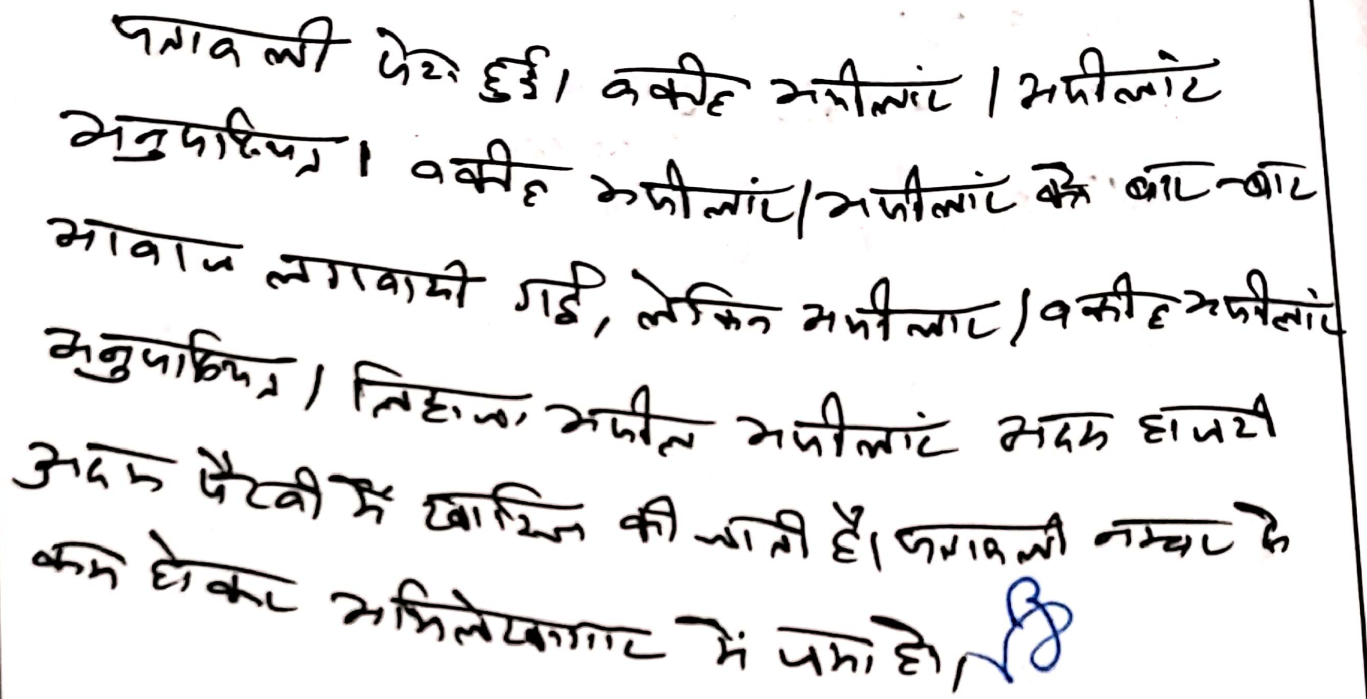 पत्रावली पेश हुई। वकील अपीलांट / अपीलांट
अनुपस्थित। वकील अपीलांट/अपीलांट को बार-बार
आवाज लगवायी गई, लेकिन अपीलांट / वकील अपीलांट
अनुपस्थित। लिहाजा अपील अपीलांट अदम हाजरी
अदम पैरवी में खारिज की जाती है। पत्रावली नम्बर से
कम होकर अभिलेखागार में जमा हो।